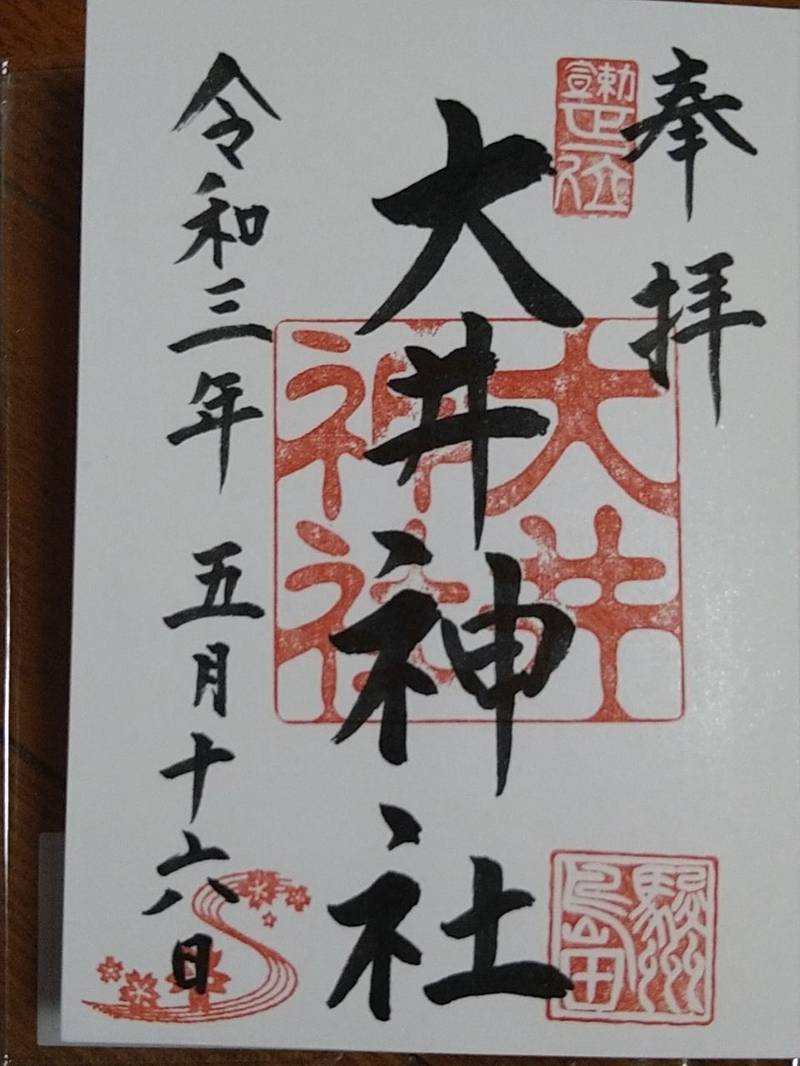 奉拝
勅宣正一位
大井神社
大井神社
駿州島田
令和三年 五月十六日